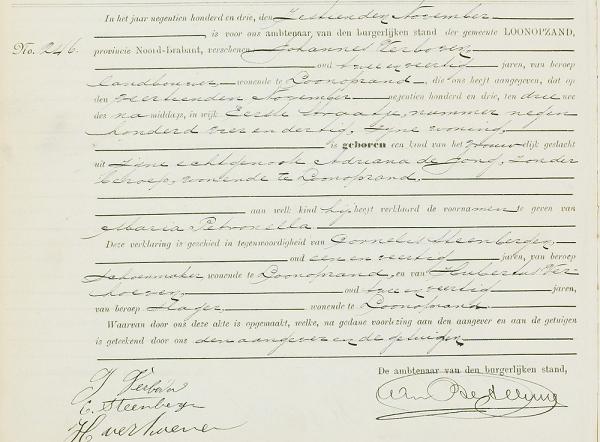 In het jaar negentien honderd en drie, den Zestienden November
is voor ons ambtenaar van den burgerlijken stand der gemeente LOONOPZAND,
No. 246. provincie Noord-brabant, verschenen Johannes Verboven
oud twee en veertig jaren, van beroep
landbouwer, wonende te Loonopzand, die ons heeft aangegeven, dat op
den veertienden November negentien honderd en drie, ten drie ure
des na middags, in wijk Eerste straatje, nummer negen
honderd vier en dertig, zijne woning,
is geboren een kind van het vrouwelijk geslacht
uit zijne echtgenoote Adriana de Jong, zonder
beroep, wonende te Loonopzand.
aan welk kind hij heeft verklaard de voornamen te geven van
Maria Petronella
Deze verklaring is geschied in tegenwoordigheid van Cornelis Steenbergen,
oud een en veertig jaren, van beroep
schoenmaker wonende te Loonopzand, en van Hubertus Ver-
hoeven, oud twee en veertig jaren,
van beroep wonende te Loonopzand.
Waarvan door ons deze akte is opgemaakt, welke, na gedane voorlezing aan den aangever en aan de getuigen
is geteekend door ons den aangever en de getuigen
De ambtenaar van den burgerlijken stand,
J Verboven
C. Steenbergen
H verhoeven